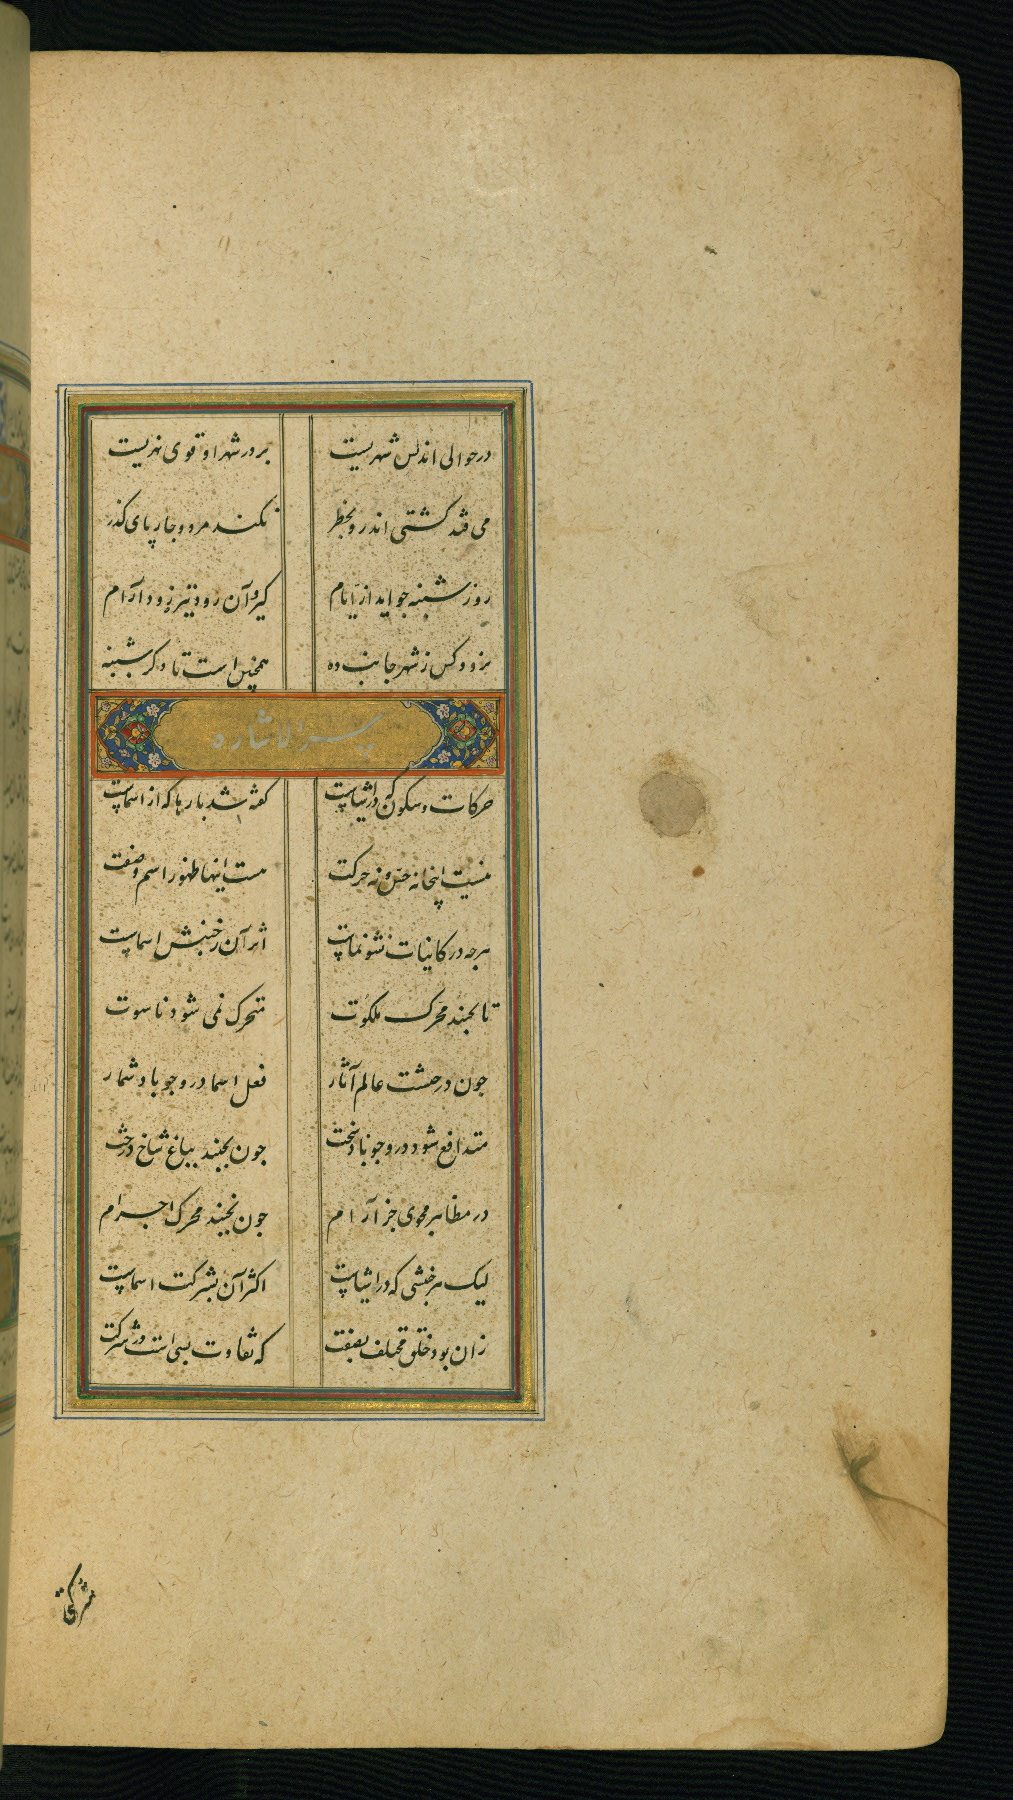 درحوالی اندلس شهریست بر در شهر او قوی نهریست
می فتد کشتی اندرو بخطر نکند مرد و چارپای گذر
روز شنبه چو آید از ایام گیرد آن رود تیز زود آرام
نرود کس ز شهر جانب ده همچنین است تا دگر شنبه
سر الاشاره
حرکات و سکون که در اشیاست گفته شد بارها که از اسماست
نیست اینجا نه جنس و نه حرکت هست اینها ظهور اسم و صفت
هرچه در کاینات نشو و نماست اثر آن ز جنبش اسماست
تا نجنبد محرک ملکوت متحرک نمی شود ناسوت
چون درختست عالم آثار فعل اسما درو چو باد شمار
متدافع شود درو چو باد سخت چون بجنبد بباغ شاخ درخت
در مظاهر مجوی جز آرام چون نجنبد محرک اجرام
لیک هر جنبشی که در اشیاست اکثر آن بشرکت اسماست
زان بود خلق مختلف بصفت که تفاوت بسی است در شرکت
شرکتی